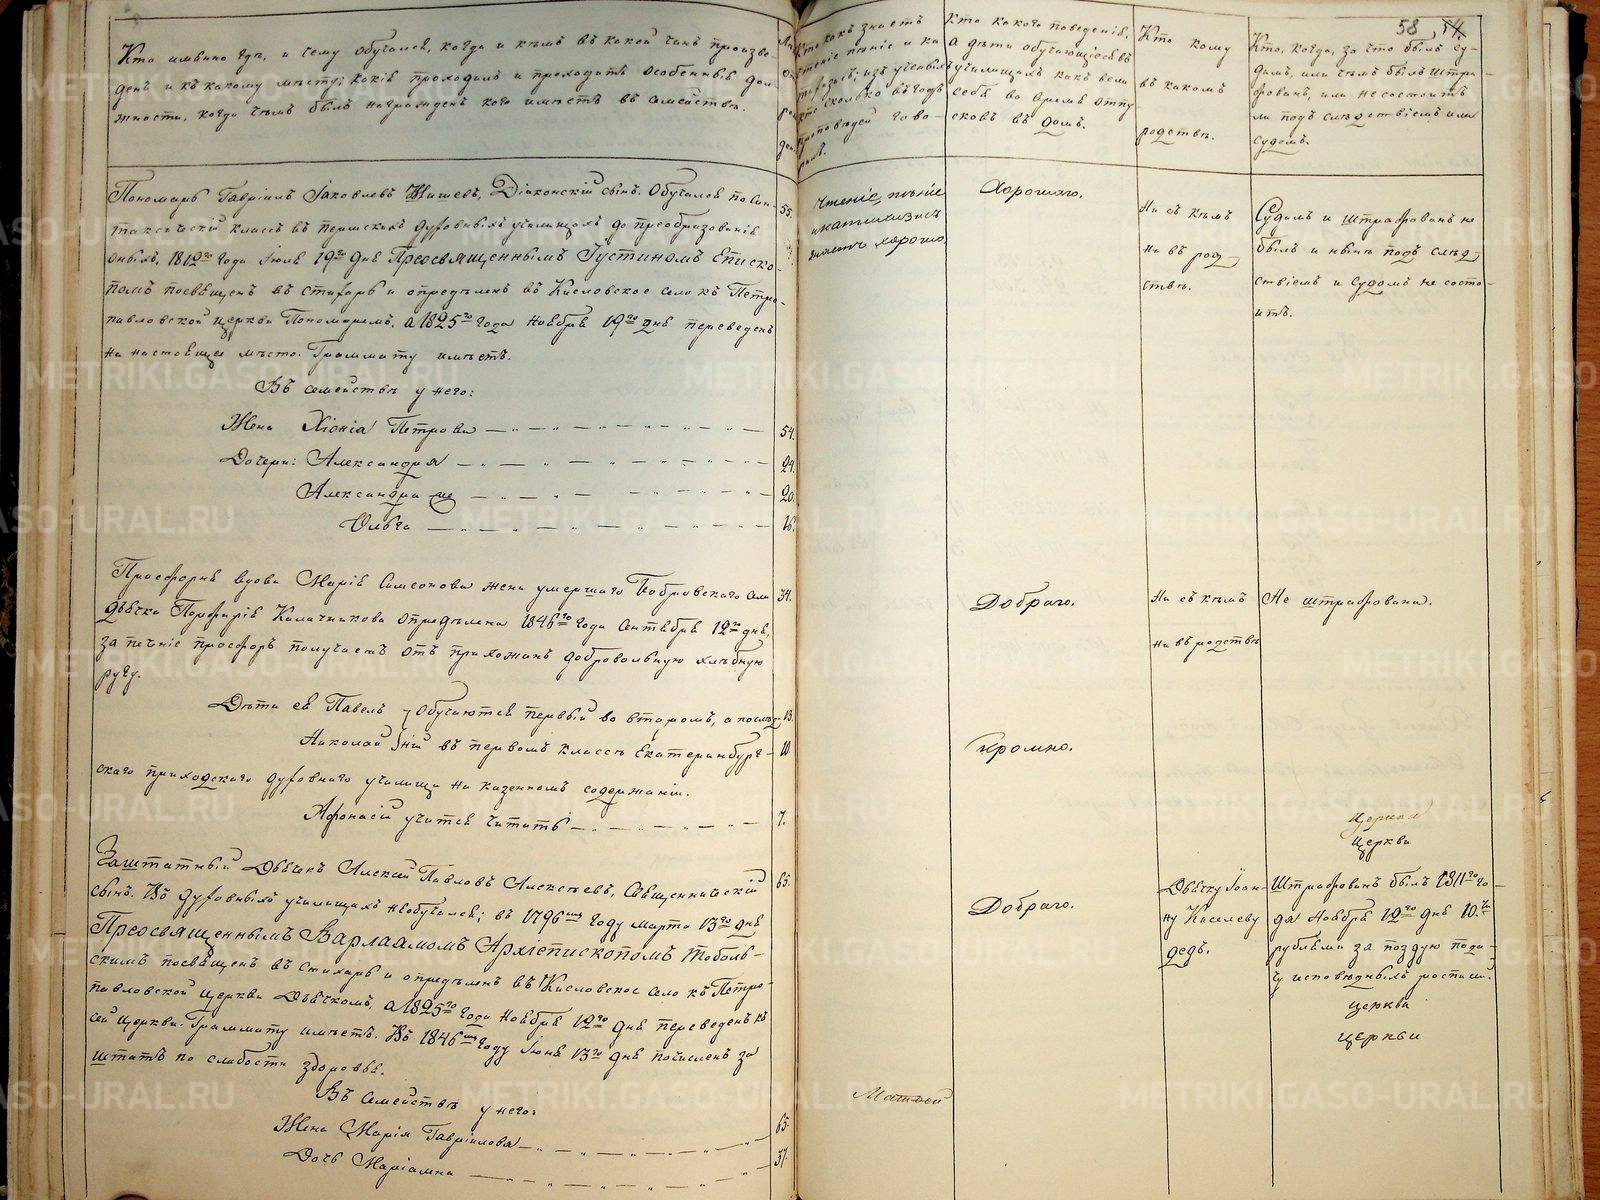 58
Кто именно гдѣ, и чему обучался, когда и кѣмъ въ какой чинъ произве-
денъ и къ какому мѣсту; какія проходилъ и проходитъ особенныя дол-
жности, когда чѣмъ былъ награжденъ кого имѣетъ въ семействѣ.
Кто какъ знаетъ
чтеніе пѣніе и ка
тихизисъ; изъ ученыхъ
кто сколько въ годъ
проповѣдей гово-
рилъ.
Кто какого поведенія.
А дѣти обучающіеся въ
училищахъ какъ вели
себя во время отпу
сковъ въ домъ.
Кто кому
въ какомъ
родствѣ.
Кто, когда, за что былъ су-
димъ, или чѣмъ былъ штра-
фованъ, или не состоитъ
ли подъ слѣдствіемъ или
судомъ.
Пономарь Гавріилъ Іаковлевъ Кишевъ, Діаконскій сынъ. Обучался по Син-
таксическій классъ въ Пермскихъ духовныхъ училищахъ до преобразованія
оныхъ, 1812го года Іюля 19го дня Преосвященнымъ Іустиномъ Еписко-
помъ посвященъ въ стихарь и опредѣленъ въ Кисловское село къ Петро-
павловской церкви Пономаремъ. А 1825го года Ноября 19го дня переведенъ
на настоящее мѣсто. Граммату имѣетъ.
55.
Чтеніе, пѣніе
и катихизисъ
знаетъ хорошо.
Хорошаго.
Ни съ кѣмъ
ни въ род-
ствѣ.
Судимъ и штрафованъ не
былъ и нынѣ подъ слѣд-
ствіемъ и судомъ не состо-
итъ.
Въ семействѣ у него:
Жена Хіонія Петрова 54.
Дочери: Александра 24.
Александра же 20.
Ольга 16.
Просфорня вдова Марія Симеонова жена умершаго Бобровскаго села
дьячка Порфирія Калачникова опредѣлена 1846го года Сентября 12го дня,
за печеніе просфоръ получаетъ отъ прихожанъ добровольную хлѣбную
ругу.
34.
Добраго.
Ни съ кѣмъ
ни въ родствѣ
Не штрафована.
Дѣти ея Павелъ } Обучаются первый во второмъ, а послѣд- 13.
Николай } ній въ первомъ классѣ Екатеринбург- 10
скаго приходскаго духовнаго училища на казенномъ содержаніи.
Скромно.
Афонасій учится читать 7.
Заштатный Дьячекъ Алексій Павловъ Алексѣевъ, Священническій
сынъ. Въ духовныхъ училищахъ необучался; въ 1796мъ году марта 13го дня
Преосвященнымъ Варлаамомъ Архіепископомъ Тоболь-
скимъ посвященъ въ стихарь и опредѣленъ въ Кисловское село къ Петро-
павловской церкви Дьячкомъ, а 1825го года Ноября 19го дня переведенъ къ
сей церкви. Граммату имѣетъ. Въ 1846мъ году Іюня 13го дня почисленъ за
штатъ по слабости здоровья.
65.
Добраго.
Дьячку Іоан-
ну Киселеву
дедъ.
церкви
церква
Штрафованъ былъ 1811го го-
да Ноября 12го дня 10.ю
рублями за поздую пода-
чу исповѣдныхъ росписей.
церква
церкви
Въ семействѣ у него:
Матѳей
Жена Марія Гавріилова 65.
Дочь Маріамна 37.